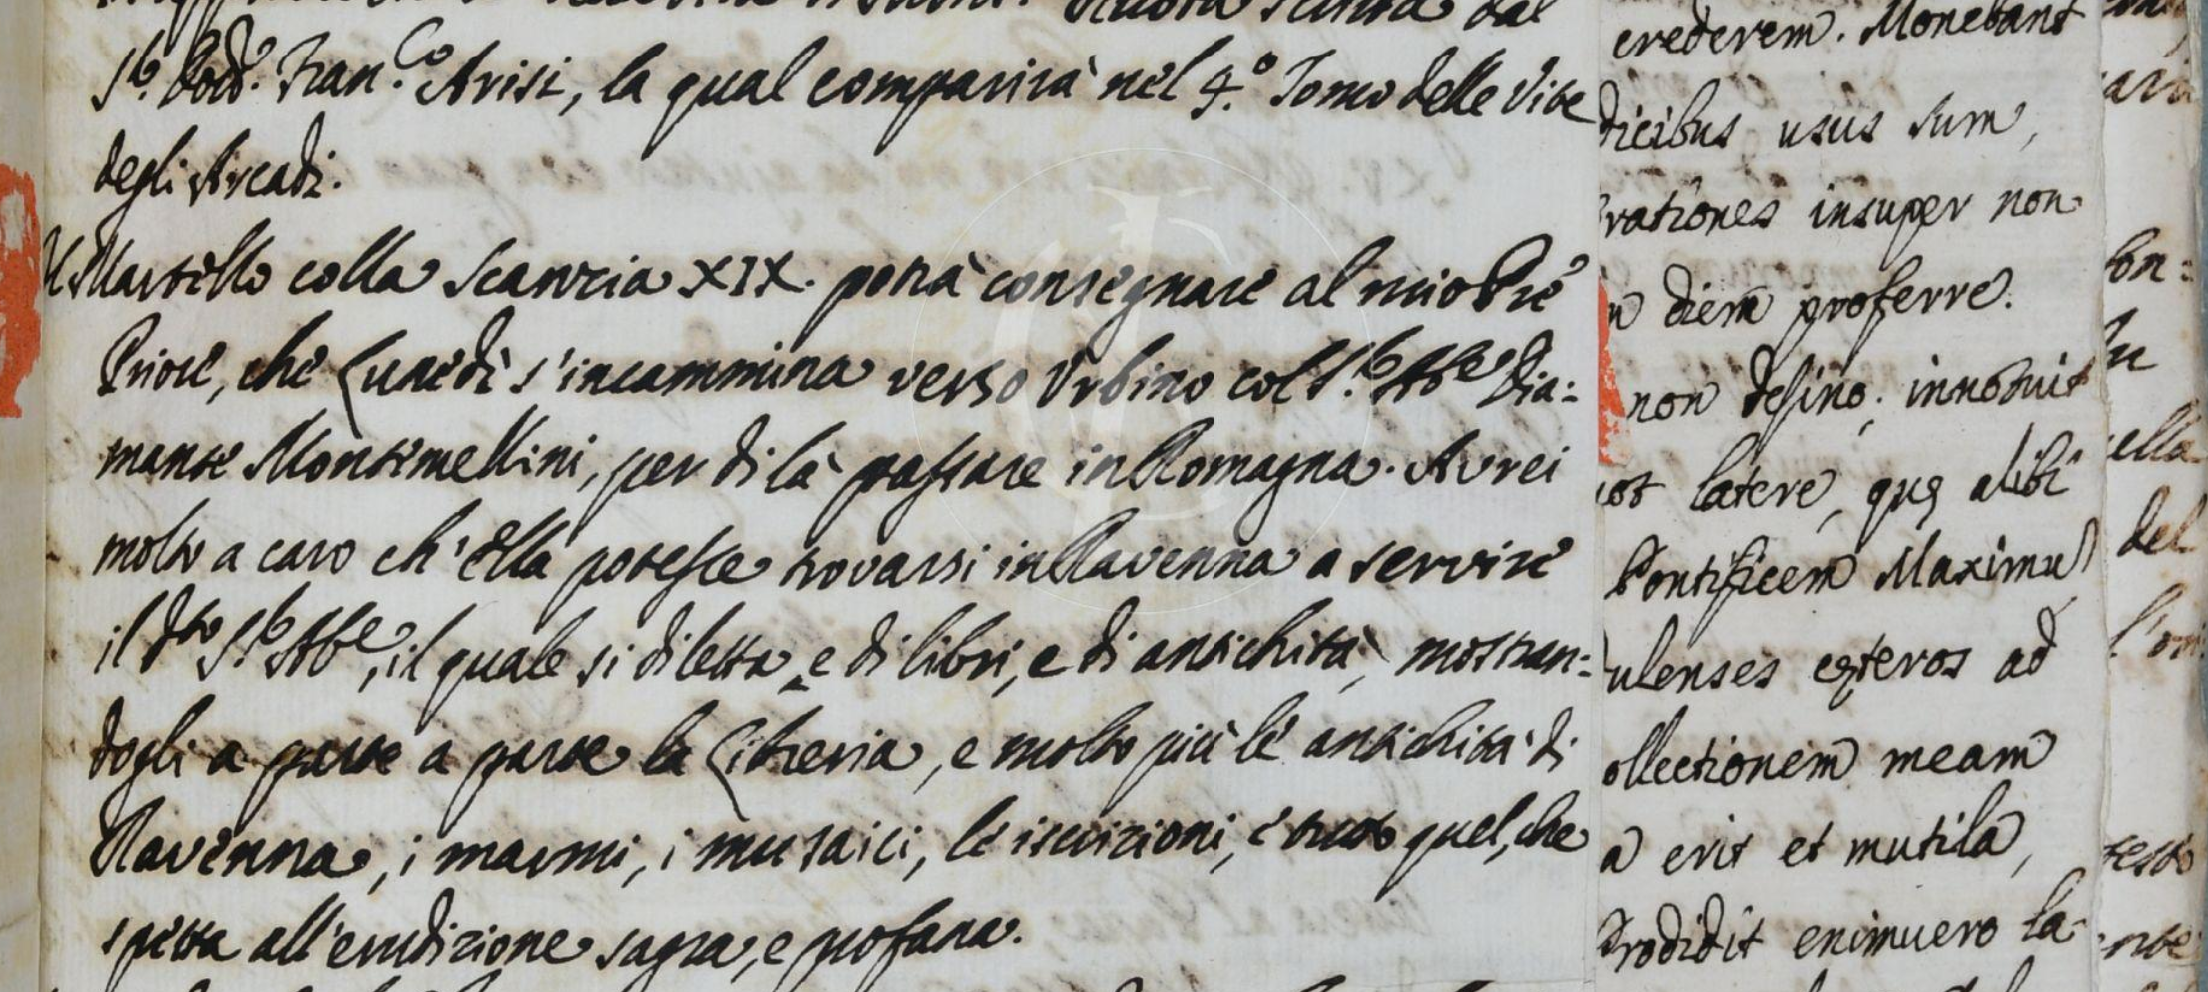 scritta dal
S.r Dott.r Fran.co Arisi, la qual comparirà nel 4.o Tomo delle Vite
degli Arcadi.
Il Martello colla Scanzia XIX. potrà consegnare al mio Pre
Priore, che Lunedì s'incammina verso Urbino col S.r Abe Dia:
mante Montemellini, per di là passare in Romagna. Avrei
molto a caro ch'Ella potesse trovarsi in Ravenna a servire
il dto S.r Abe, il quale si diletta, e di libri, e di antichità, mostran:
dogli a parte a parte la Libreria, e molto più le antichità di
Ravenna, i marmi, i musaici, le iscrizioni, e tutto quel, che
spetta all'erudizione sagra, e profana.
crederem. Monebant
dicibus usus sum,
rationes insuper non
diem proferre.
non desino; innotuit
latere, quę alibi
Pontificem Maximu
ulenses exteros ad
ollectionem meam
a erit et mutila,
Prodidit enimuero la
ella
del